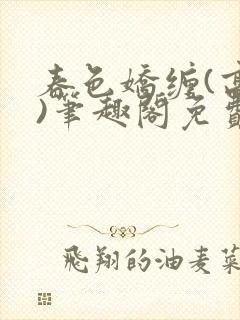 春色嬌纏(高
)筆趣閣免費
飛翔的油麦菜